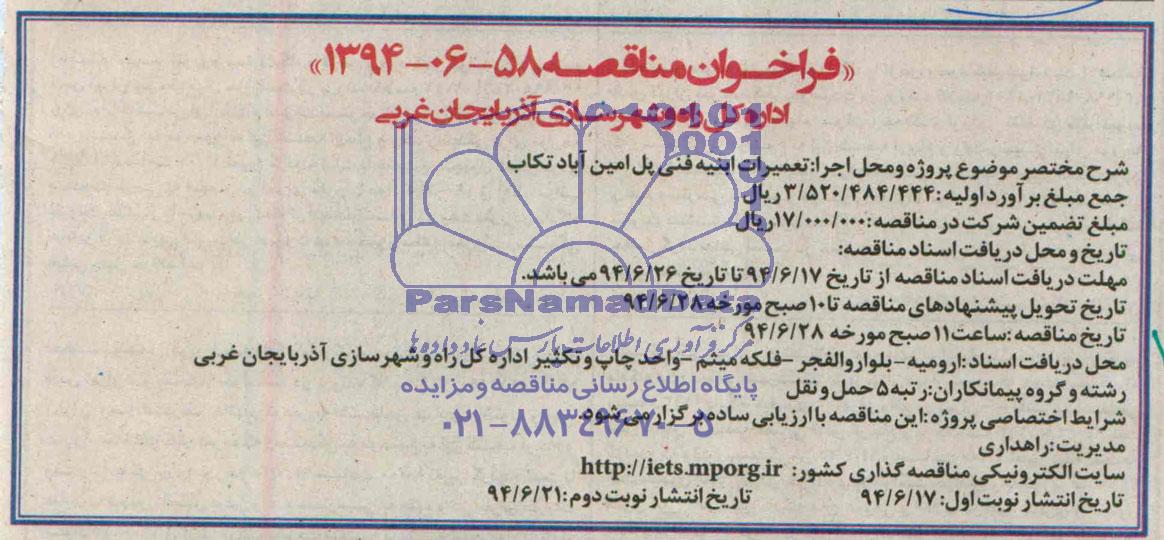 «فراخوان مناقصه ۵۸-۰۶-۱۳۹۴»
اداره کل راه و شهرسازی آذربایجان غربی
شرح مختصر موضوع پروژه و محل اجرا: تعمیرات ابنیه فنی پل امین آباد تکاب
جمع مبلغ برآورد اولیه: ۳/۵۲۰/۴۸۴/۴۴۴ ریال
مبلغ تضمین شرکت در مناقصه: ۱۷/۰۰۰/۰۰۰ ریال
تاریخ و محل دریافت اسناد مناقصه:
مهلت دریافت اسناد مناقصه از تاریخ ۹۴/۶/۱۷ تا تاریخ ۹۴/۶/۲۶ می باشد.
ParsNamadData
تاریخ تحویل پیشنهادهای مناقصه تا ۱۰ صبح مورخه ۹۴/۶/۲۸
تاریخ مناقصه: ساعت ۱۱ صبح مورخه ۹۴/۶/۲۸
مرکز فرآوری اطلاعات پارس نماد داده ها
محل دریافت اسناد: ارومیه - بلوار والفجر - فلکه میثم - واحد چاپ و تکثیر اداره کل راه و شهرسازی آذربایجان غربی
رشته و گروه پیمانکاران: رتبه ۵ حمل و نقل
پایگاه اطلاع رسانی مناقصه و مزایده
شرایط اختصاصی پروژه: این مناقصه با ارزیابی ساده برگزار می شود.
۰۲۱-۸۸۳۴۹۶۷۰-۵
مدیریت: راهداری
سایت الکترونیکی مناقصه گذاری کشور: http://iets.mporg.ir
تاریخ انتشار نوبت اول: ۹۴/۶/۱۷ تاریخ انتشار نوبت دوم: ۹۴/۶/۲۱